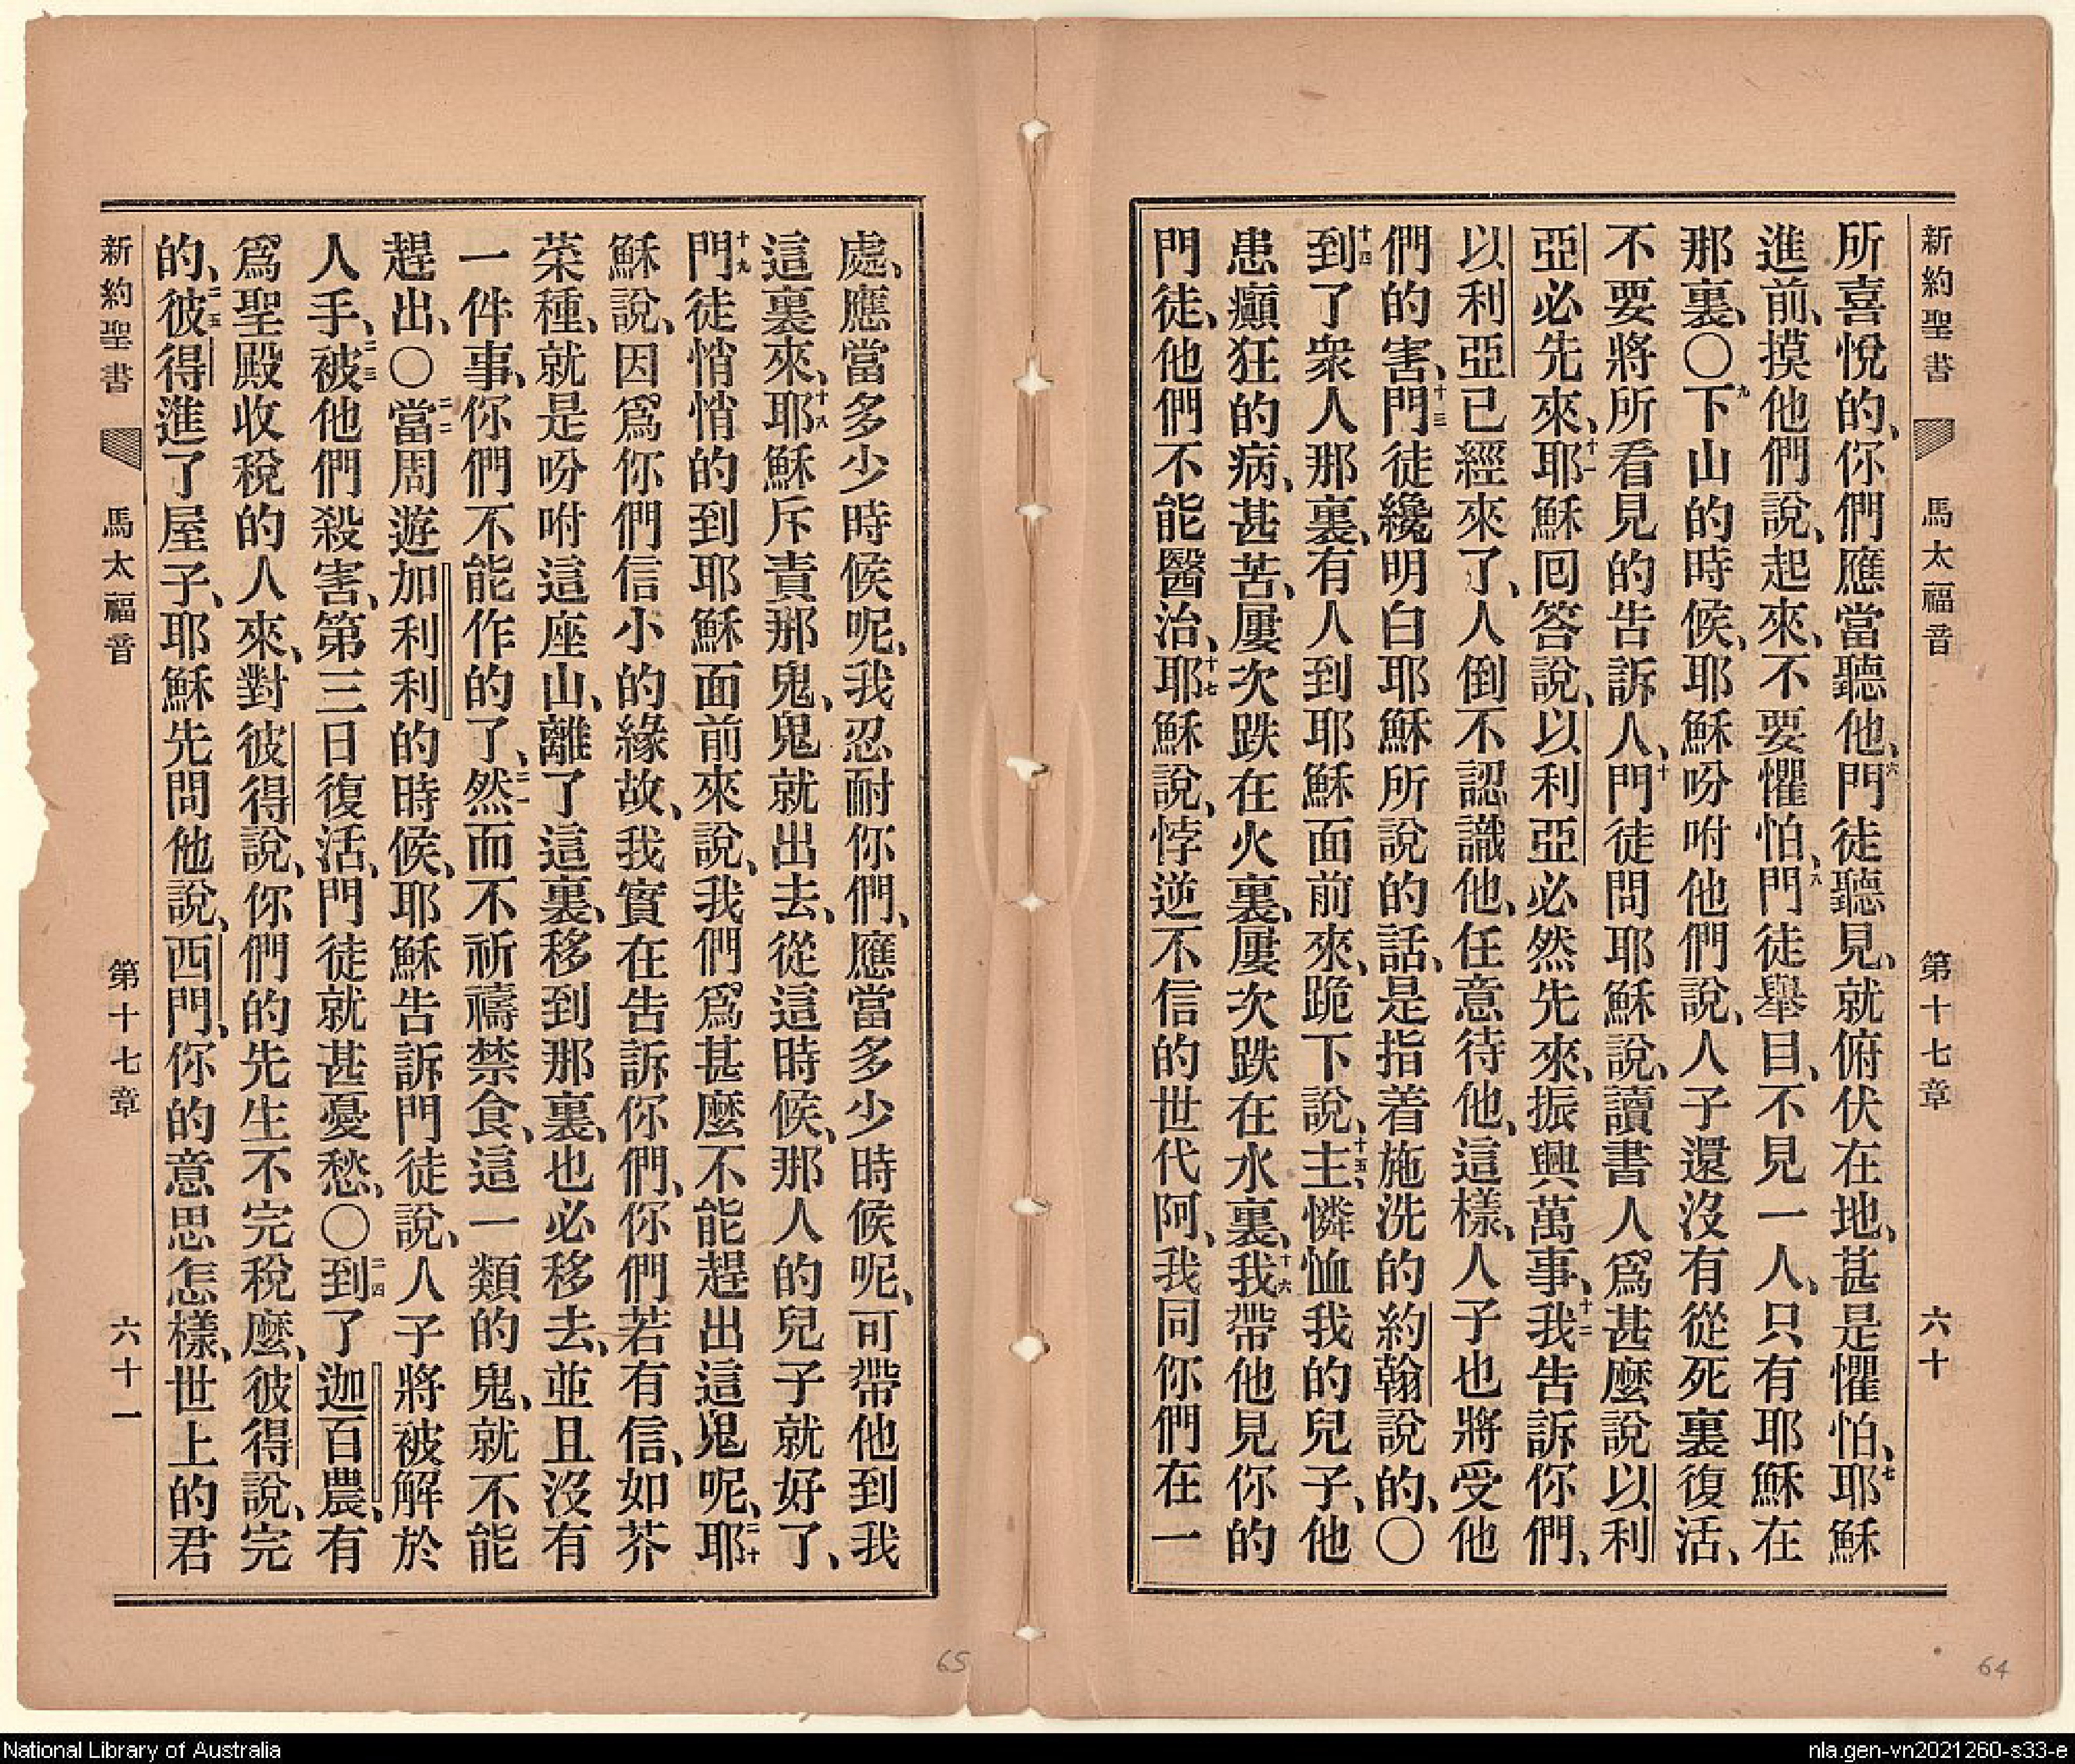 新約聖書 馬太福音 第十七章 六十
所喜悅的、你們應當聽他、六門徒聽見、就俯伏在地、甚是懼怕、七耶穌
進前、摸他們說、起來、不要懼怕、八門徒舉目、不見一人、只有耶穌在
那裏、〇九下山的時候、耶穌吩咐他們說、人子還沒有從死裏復活、
不要將所看見的告訴人、十門徒問耶穌說、讀書人爲甚麼說以利
亞必先來、十一耶穌回答說、以利亞必然先來、振興萬事、十二我告訴你們、
以利亞已經來了、人倒不認識他、任意待他、這樣、人子也將受他
們的害、十三門徒纔明白耶穌所說的話、是指着施洗的約翰說的、〇
十四到了衆人那裏、有人到耶穌面前來、跪下說、十五主、憐恤我的兒子、他
患癲狂的病、甚苦、屢次跌在火裏、屢次跌在水裏、十六我帶他見你的
門徒、他們不能醫治、十七耶穌說、悖逆不信的世代阿、我同你們在一
處、應當多少時候呢、我忍耐你們、應當多少時候呢、可帶他到我
這裏來、十八耶穌斥責那鬼、鬼就出去、從這時候、那人的兒子就好了、
十九門徒悄悄的到耶穌面前來說、我們爲甚麼不能趕出這鬼呢、二十耶
穌說、因爲你們信小的緣故、我實在告訴你們、你們若有信、如芥
菜種、就是吩咐這座山、離了這裏、移到那裏、也必移去、並且沒有
一件事、你們不能作的了、二一然而不祈禱禁食、這一類的鬼、就不能
趕出、〇二二當周遊加利利的時候、耶穌告訴門徒說、人子將被解於
人手、二三被他們殺害、第三日復活、門徒就甚憂愁、〇二四到了迦百農、有
爲聖殿收稅的人來、對彼得說、你們的先生不完稅麼、彼得說、完
的、二五彼得進了屋子、耶穌先問他說、西門、你的意思怎樣、世上的君
新約聖書 馬太福音 第十七章 六十一
65
64
National Library of Australia
nla.gen-vn2021260-s33-e